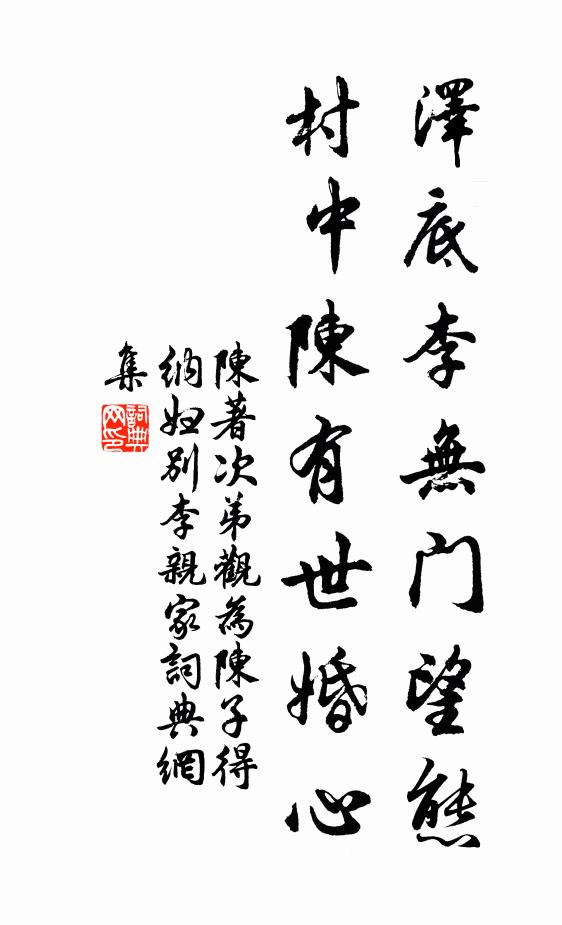 澤底李無門望態
村中陳有世婚心
陳著次弟觀為陳子得
納婦別李親家詞典網
集
詞典网印